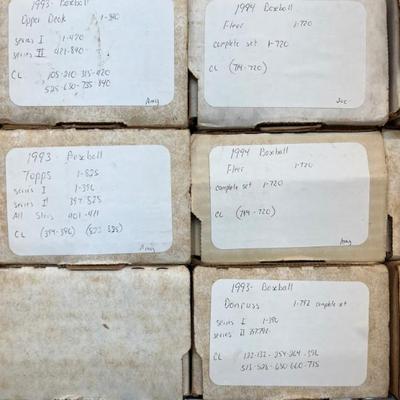 1993- Baseball
Upper Deck 1-840
series I 1-420
series II 421-840
CL 105-210 315-420
525-630-735-840
Amy
1994 Baseball
Fleer 1-720
complete set 1-720
CL (714-720)
Joe
1993- Baseball
Topps 1-825
series I 1-396
series II 397-825
All Stars 401-411
CL (394-396) (823-825)
Amy
1994 Baseball
Fleer 1-720
complete set 1-720
CL (714-720)
Amy
1993- Baseball
Donruss 1-792 complete set
series I 1-396
series II 397-792
CL 132-254-264-396
513-528-650-660-735